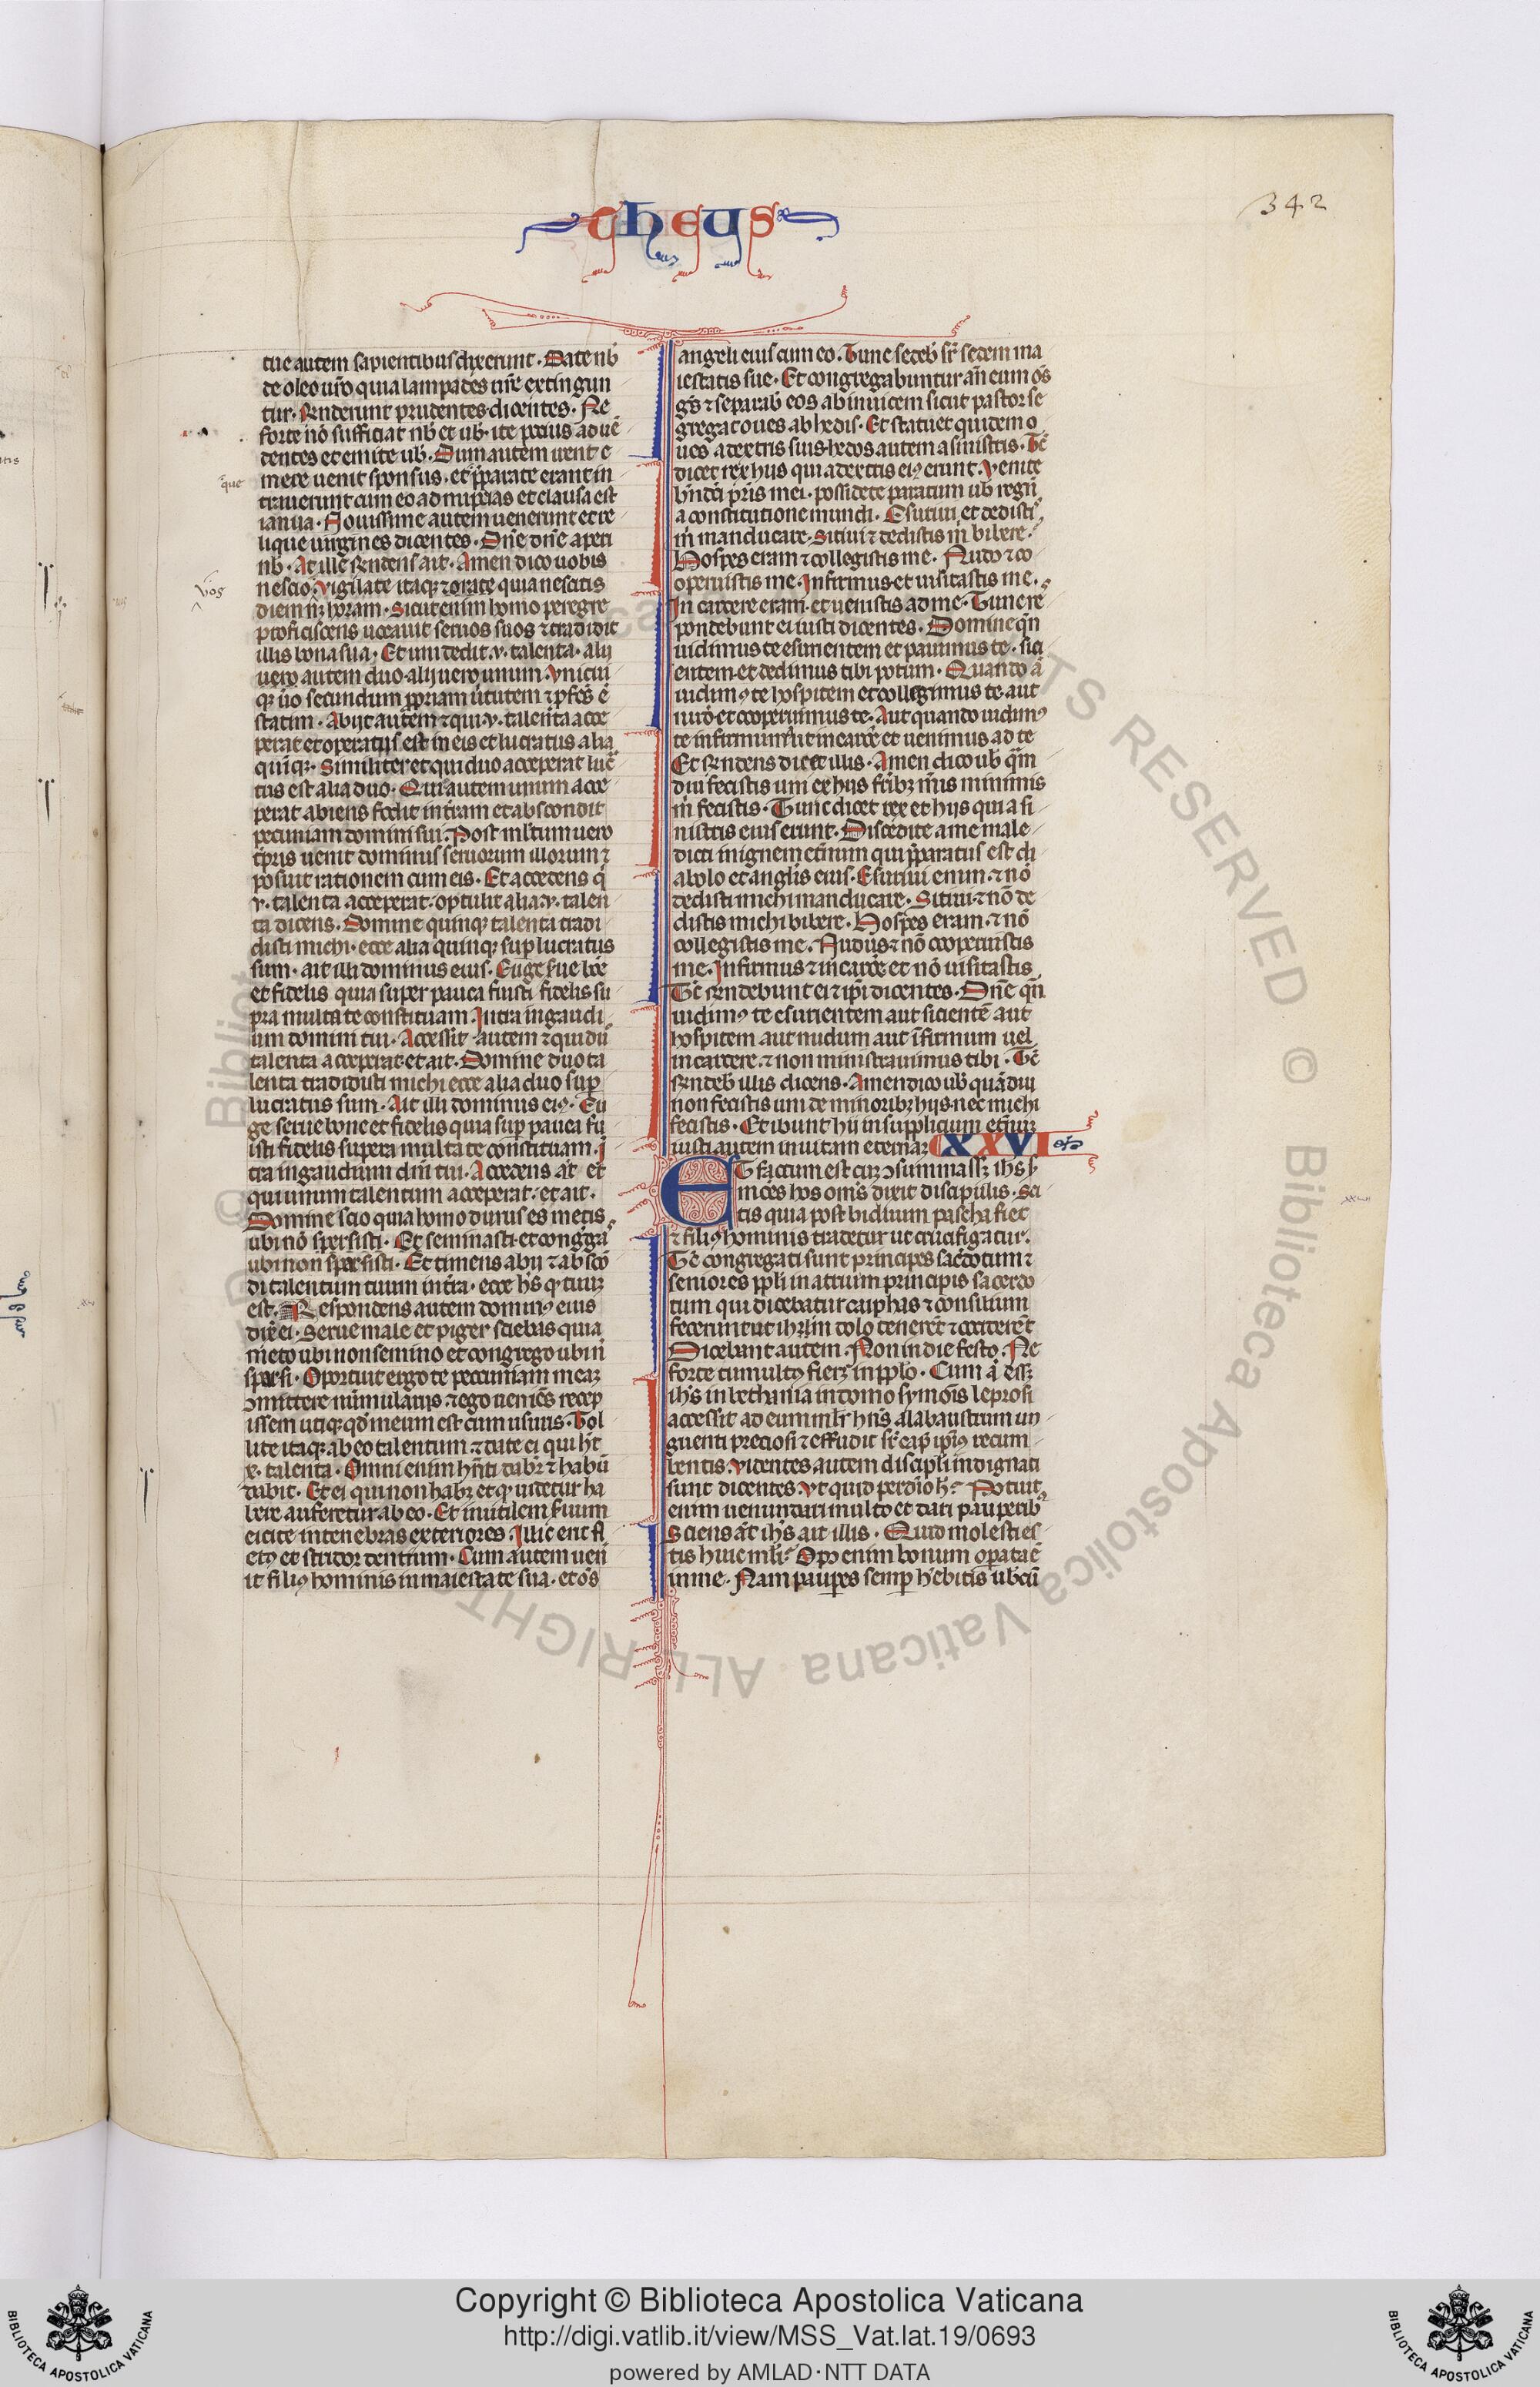 theus
342
tue autem sapientibus dixerunt. Date nb̄
de oleo ur̄o quia lampades nr̄e extingun
tur. R̄nderunt prudentes dicentes. Ne
forte nō sufficiat nb̄ et ub̄. ite pocius ad uē
dentes et emite ub̄. Dum autem irent e
mere uenit sponsus. et p̄parate erant in
que
trauerunt cum eo ad nupcias et clausa est
ianua. Nouissime autem uenerunt et re
lique uirgines dicentes. Dn̄e dn̄e aperi
nb̄. At ille r̄ndens ait. Amen dico uobis
vos
nescio. Vigilate itaqꝫ ⁊ orate quia nescitis
diem nꝫ horam. Sicut enim homo peregre
proficiscens uocauit seruos suos ⁊ tradidit
illis bona sua. Et uni dedit .v. talenta. alij
uero autem duo. alij uero unum. Vnicui
qꝫ ūo secundum ꝓpriam uirtutem ⁊ ꝓfcūs ē
statim. Abijt autem ⁊ qui .v. talenta acce
perat et operatus est in eis et lucratus alia
quinqꝫ. Similiter et qui duo acceperat luc̄
tus est alia duo. Qui autem unum acce
perat abiens fodit in t̄ram et abscondit
pecuniam domini sui. Post ml̄tum uero
tp̄ris uenit dominus seruorum illorum ⁊
posuit rationem cum eis. Et accedens qͥ
.v. talenta acceperat. optulit alia .v. talen
ta dicens. Domine quinqꝫ talenta tradi
disti michi. ecce alia quinqꝫ suꝑ lucratus
sum. ait illi dominus eius. Euge s̄ue bōe
et fidelis quia super pauca fuisti fidelis su
pra multa te constituam. Intra in gaudi
um domini tui. Accessit autem ⁊ qui duo
talenta acceperat. et ait. Domine duo ta
lenta tradidisti michi ecce alia duo suꝑ
lucratus sum. Ait illi dominus eiꝰ. Eu
ge serue bone et fidelis quia suꝑ pauca fu
isti fidelis supera multa te constituam. I
tra in gaudium dn̄i tui. Accedens aūt et
qui unum talentum acceperat. et ait.
Domine scio quia homo durus es metis
ubi nō spersisti. Et seminasti. et congrega
ubi non spersisti. Et timens abij ⁊ absco
di talentum tuum in t̄ra. ecce hēs qꝫ tuuꝫ
est. Respondens autem dominꝰ eius
dix̄ ei. Serue male et piger sciebas quia
meto ubi non semino et congrego ubi nō
sparsi. Oportuit ergo te peccuniam meaꝫ
ↄmittere nūmulariis ⁊ ego ueniēs recep
issem utiqꝫ qd̄ meum est cum usuris. Tol
lite itaqꝫ ab eo talentum ⁊ date ei qui h̄t
.x. talenta. Omni enim hn̄ti dabit̄ ⁊ habū
dabit. Et ei qui non habet et qꝫ uidetur ha
bere auferetur ab eo. Et inutilem s̄uum
eicite in tenebras exteriores. Illic erit fl
etꝰ et stridor dentium. Cum autem uen
it filiꝰ hominis in maiestate sua. et oēs
angeli eius cum eo. Tunc sedeb̄ sr̄ sedem ma
iestatis sue. Et congregabuntur an̄ eum oēs
gēs ⁊ separab̄ eos ab inuicem sicut pastor se
gregat oues ab hedis. Et statuet quidem o
ues a dextris suis. hedos autem a sinistris. Tc̄
dicet rex hijs qui a dextris eiꝰ erunt. Venite
bn̄dc̄i pr̄is mei. possidete paratum ub̄ regnū
a constitutione mundi. Esuriui et dedistis
m̄ manducare. Sitiui ⁊ dedistis m̄ bibere.
Hospes eram ⁊ collegistis me. Nudo ⁊ co
operuistis me. Infirmus. et uisitastis me.
In carcere eram. et uenistis ad me. Tunc re
pondebunt ei iusti dicentes. Domine qn̄
uidimus te esurientem et pauimus te. siti
entem. et dedimus tibi potum. Quando aū
uidimꝰ te hospitem et collegimus te. aut
nudō et cooperuimus te. Aut quando uidimꝰ
te infirmum ut in carcē et uenimus ad te
Et r̄ndens dicet illis. Amen dico ub̄ qm̄
diu fecistis uni ex hijs fr̄ibꝫ meis minimis
m̄ fecistis. Tunc dicet rex et hijs qui a si
nistris eius erunt. Discedite a me male
dicti in ignem et̄num qui p̄paratus est di
abolo et angl̄is eius. Esuriui enim. ⁊ nō
dedisti michi manducare. Sitiui. ⁊ nō de
distis michi bibere. Hospes eram. ⁊ nō
collegistis me. Nudus ⁊ nō cooperuistis
me. Infirmus ⁊ in carcē et nō uisitastis
Tc̄ r̄ndebunt ei ⁊ ip̄i dicentes. Dn̄e qn̄
uidimꝰ te esurientem aut sicientē aut
hospitem aut nudum aut īfirmum uel
in carcere. ⁊ non ministrauimus tibi. Tc̄
r̄ndeb̄ illis dicens. Amen dico ub̄ quādiu
non fecistis uni de minoribꝫ hijs. nec michi
fecistis. Et ibunt hij in supplicium et̄nuꝫ
iusti autem in uitam eternaꝫ XXVI
ET factum est cuꝫ ↄsummassꝫ ih̄s s̄
mōes hos om̄s dixit discipulis. Sci
tis quia post biduum pascha fiet
⁊ filiꝰ hominis tradetur ut crucifigatur.
Tc̄ congregati sunt principes sac̄dotum ⁊
seniores ppl̄i in atrium principis sacerdo
tum qui dicebatur cayphas ⁊ consilium
fecerunt ut ih̄m in dolo tenerēt ⁊ occiderēt
Dicebant autem. Non in die festo. Ne
forte tumultꝰ fieꝫ in ppl̄o. Cum aū essꝫ
ih̄s in bethania in domo symōis leprosi
accessit ad eum ml̄r hn̄s alabaustrum un
guenti preciosi ⁊ effudit sr̄ cap̄ ip̄iꝰ recum
bentis. Videntes autem discipli indignati
sunt dicentes. Vt quid perdic̄o h̄. Potuit
enim uenundari multo et dari pauperib̄
Sciens aūt ih̄s ait illis. Quid molesti es
tis huic ml̄ri. Opꝰ enim bonum operata ē
in me. Nam pauꝑes semꝑ h̄ebitis ub̄cū
Copyright © Biblioteca Apostolica Vaticana
http://digi.vatlib.it/view/MSS_Vat.lat.19/0693
powered by AMLAD·NTT DATA
BIBLIOTECA APOSTOLICA VATICANA
BIBLIOTECA APOSTOLICA VATICANA
© Biblioteca Apostolica Vaticana ALL RIGHTS RESERVED